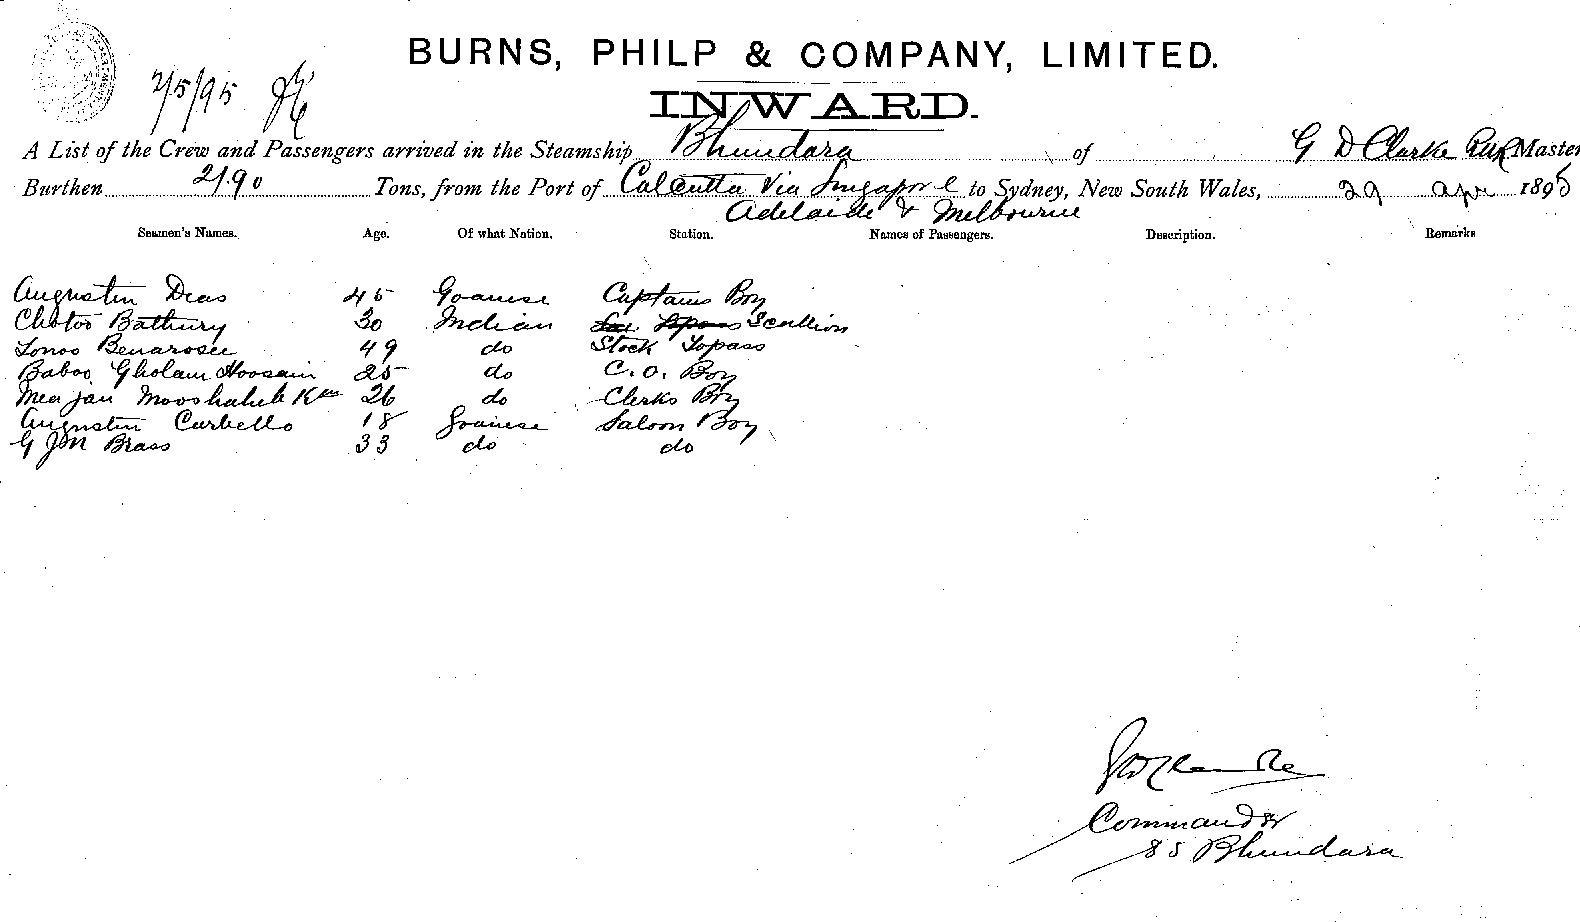 BURNS, PHILP & COMPANY, LIMITED.
2/5/95
INWARD.
A List of the Crew and Passengers arrived in the Steamship Bhundara of G D Clarke RNR Master
Burthen 2190 Tons, from the Port of Calcutta Via Singapore to Sydney, New South Wales, 29 Apr 1895
Adelaide & Melbourne
Seamen's Names. Age. Of what Nation. Station. Names of Passengers. Description. Remarks
Augustin Dias 45 Goanese Captains Boy
Chotoo Bathury 30 Indian Scullion
Tonoo Benarosee 49 do Stock Topass
Baboo Gholam Hoosain 25 do C. O. Boy
Mea jan Mooshahib 26 do Clerks Boy
Augustin Curbello 18 Goanese Saloon Boy
G J M Brass 33 do do
G D Clarke
Commander
SS Bhundara